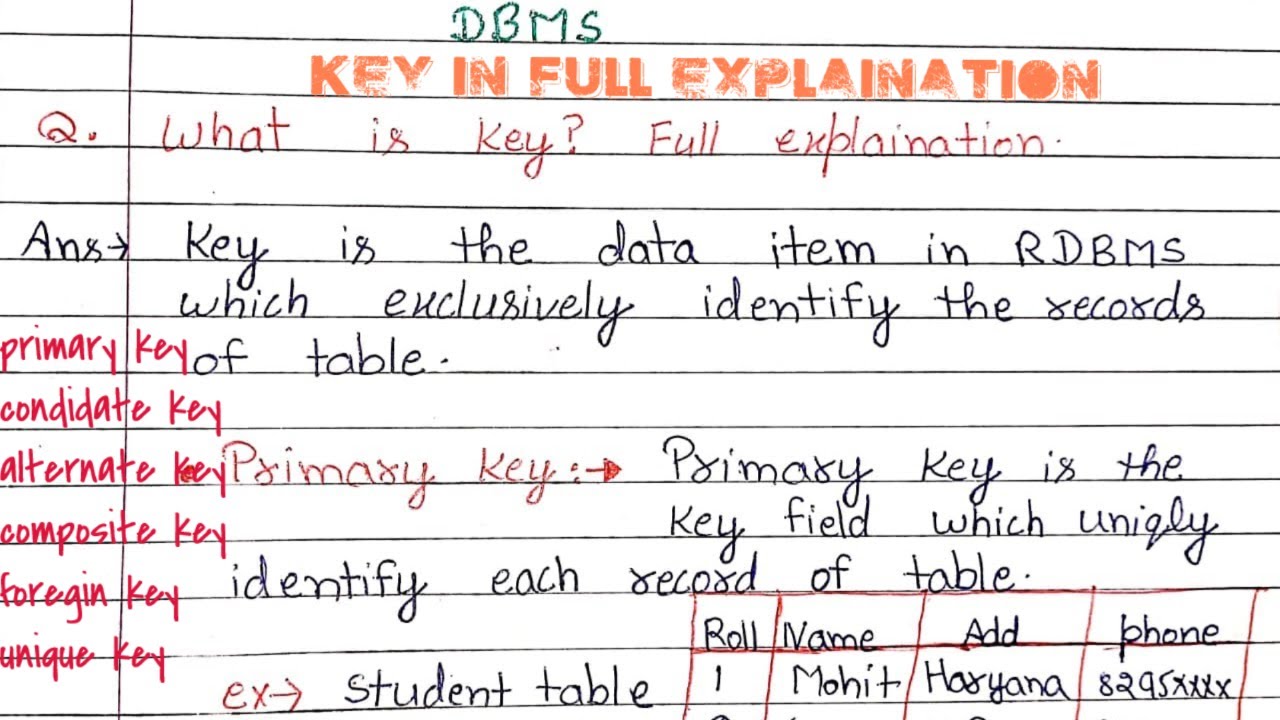 DBMS
KEY IN FULL EXPLAINATION
Q. What is key? Full explaination.
Ans→ Key is the data item in RDBMS
which exclusively identify the records
of table.
primary key
condidate key
alternate key
composite key
foregin key
unique key
Primary key:→ Primary key is the
key field which uniqly
identify each record of table.
ex→ student table
Roll Name Add phone
1 Mohit Haryana 8295xxxx